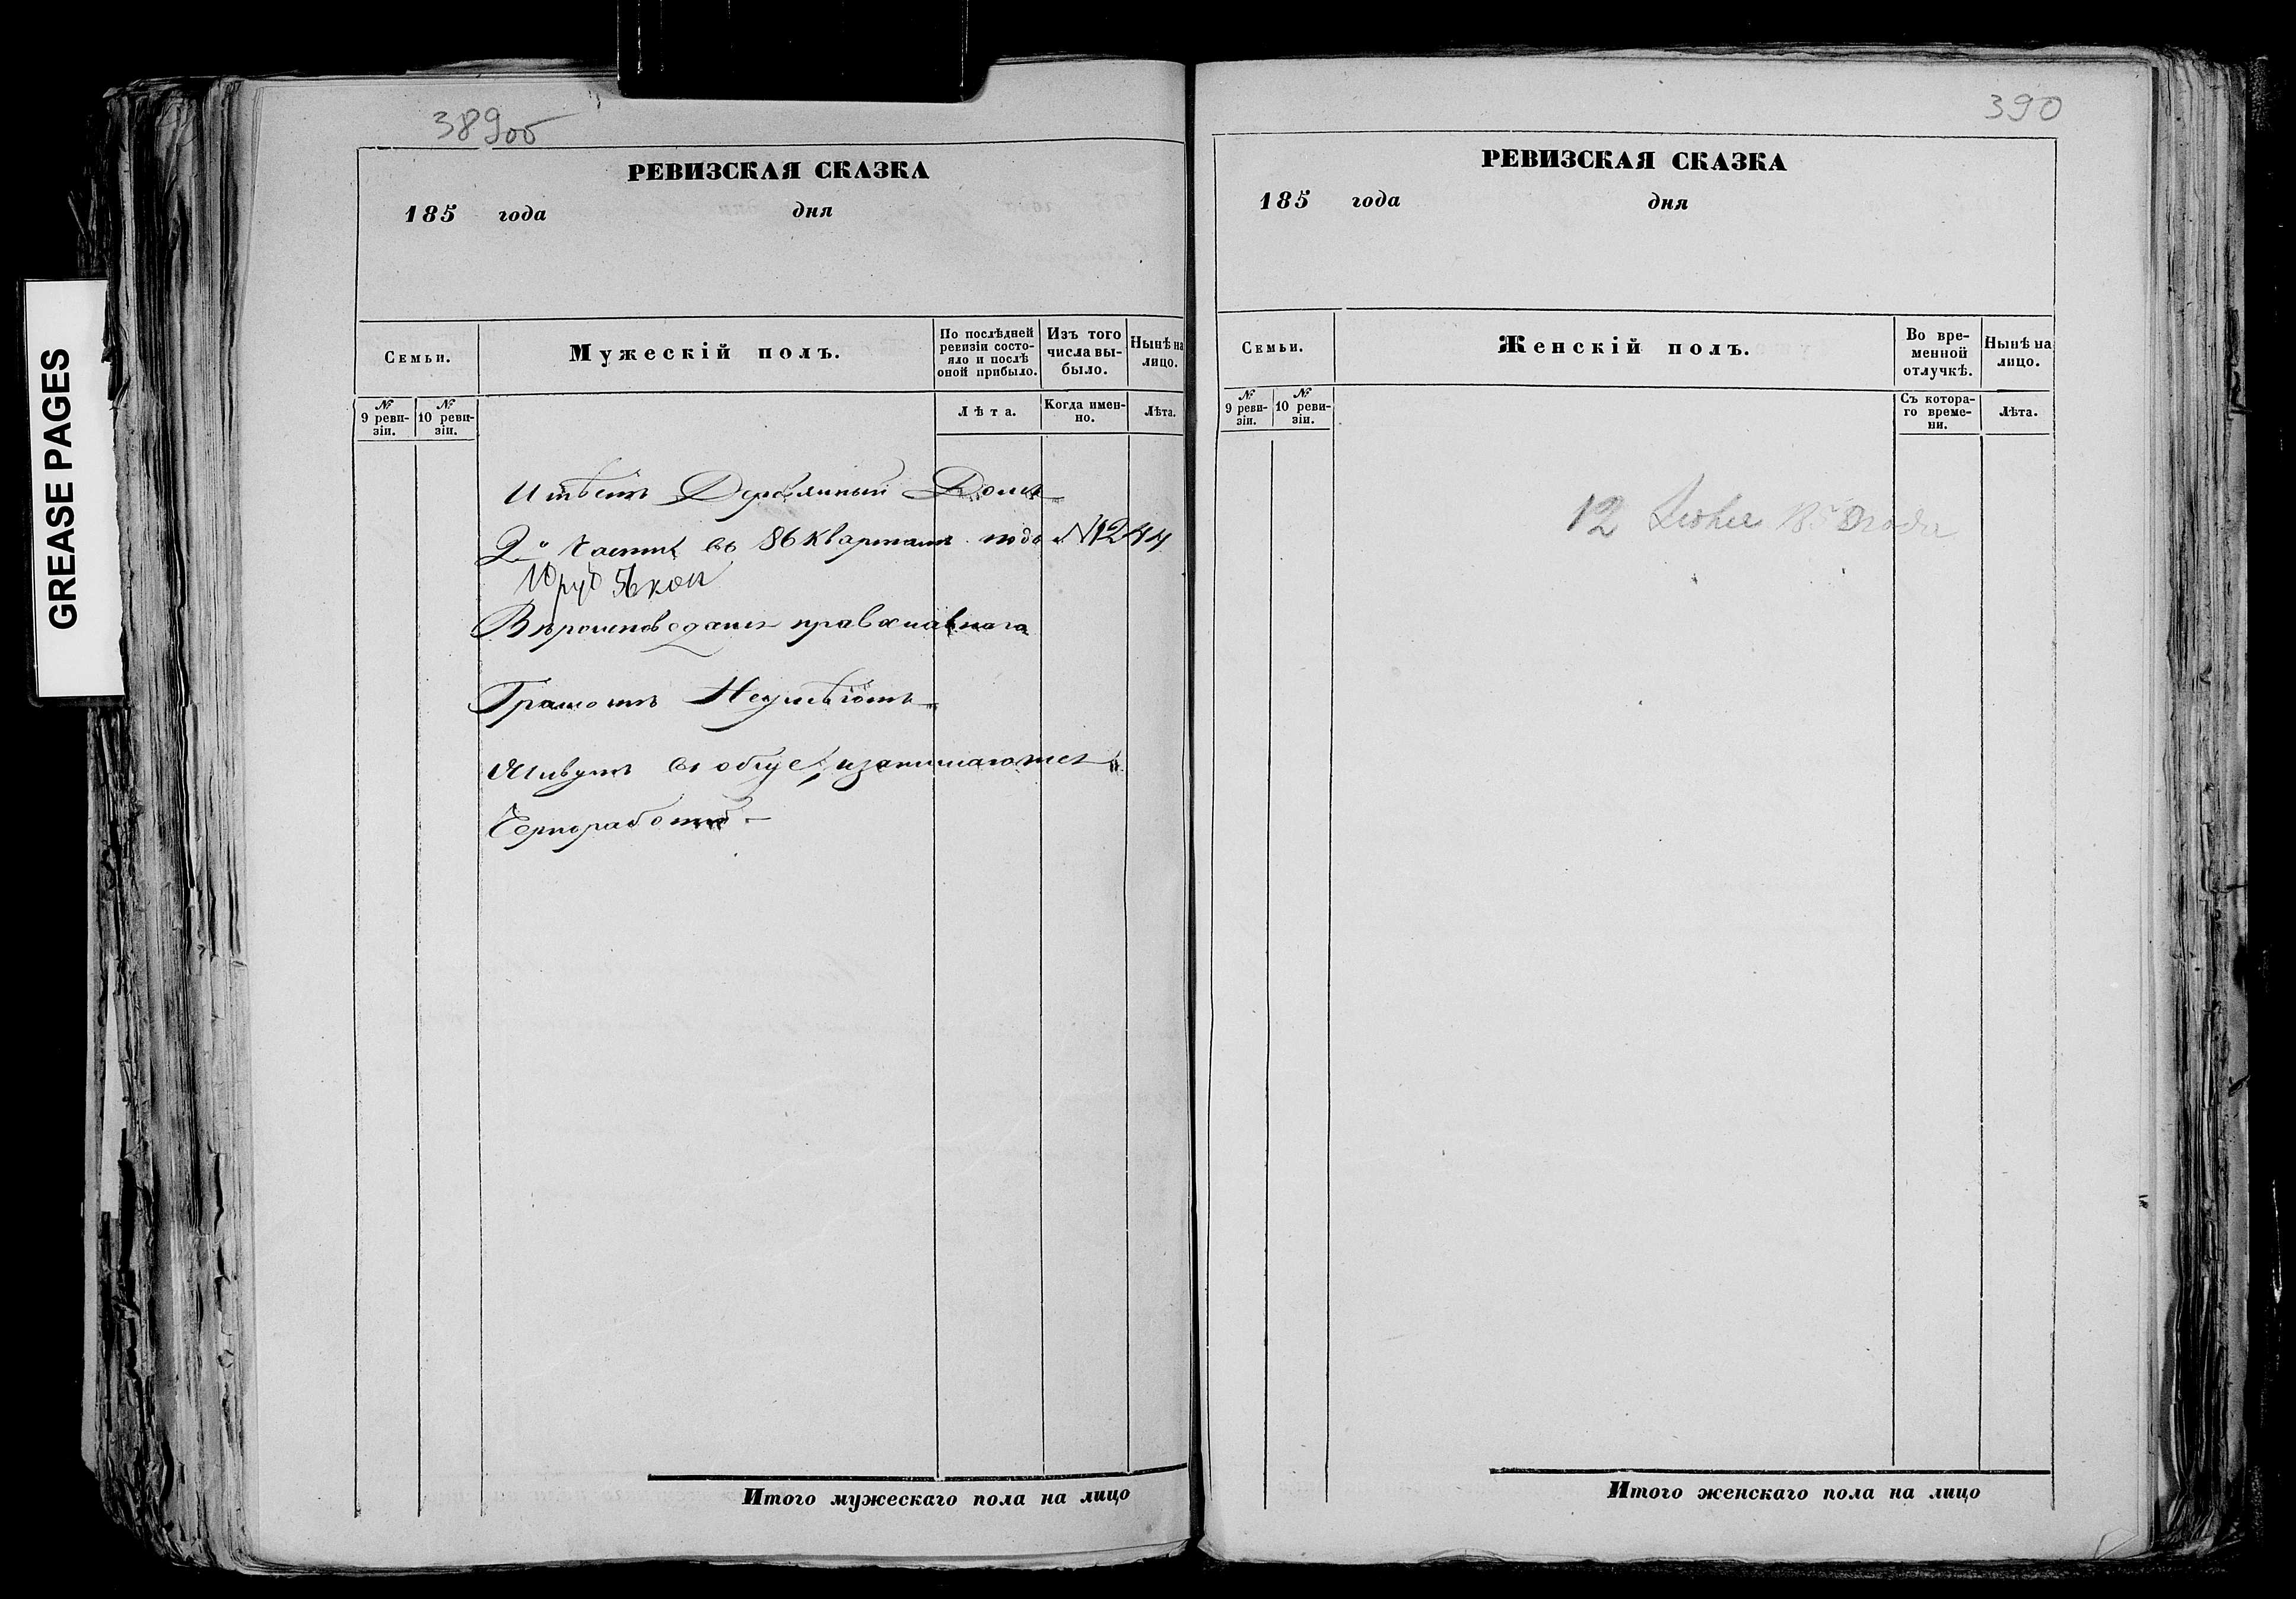 GREASE PAGES
389об
РЕВИЗСКАЯ СКАЗКА
185 года дня
Семьи.
Мужескій полъ.
По послѣдней ревизіи состо-
яло и послѣ
оной прибыло.
Изъ того
числа вы-
было.
Нынѣ на
лицо.
№ 9 реви-
зіи.
№ 10 реви-
зіи.
Лѣта.
Когда имен-
но.
Лѣта.
Имѣетъ Деревянный Домъ
2й части въ 86 квартале подъ №1244
10 руб 56 коп
Вѣроисповедания православнаго
Грамотѣ Неумѣютъ
Живутъ въ обще, изанимаются
Чернработой
Итого мужескаго пола на лицо
390
РЕВИЗСКАЯ СКАЗКА
185 года дня
Семьи.
Женскій полъ.
Во вре-
менной
отлучкѣ.
Нынѣ на
лицо.
№ 9 реви-
зіи.
№ 10 реви-
зіи.
Съ котора-
го време-
ни.
Лѣта.
12 1858 года
Итого женскаго пола на лицо